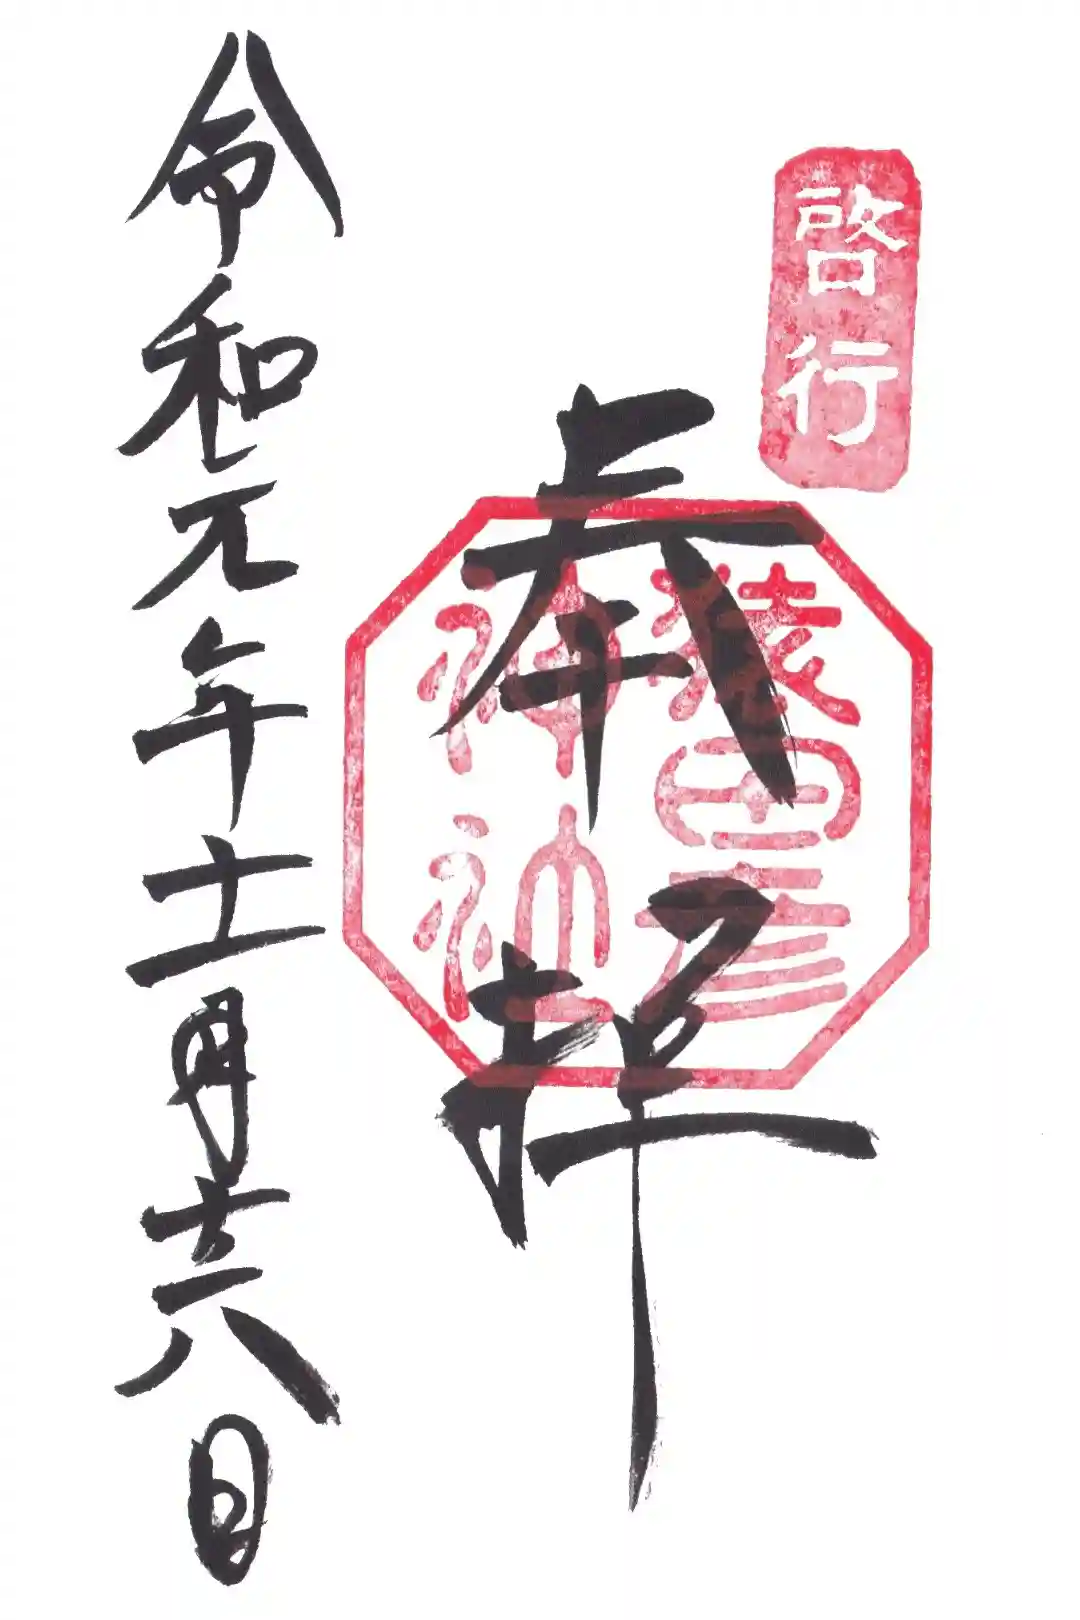 啓行
奉拝
猿田彦
神社
令和元年十一月十六日